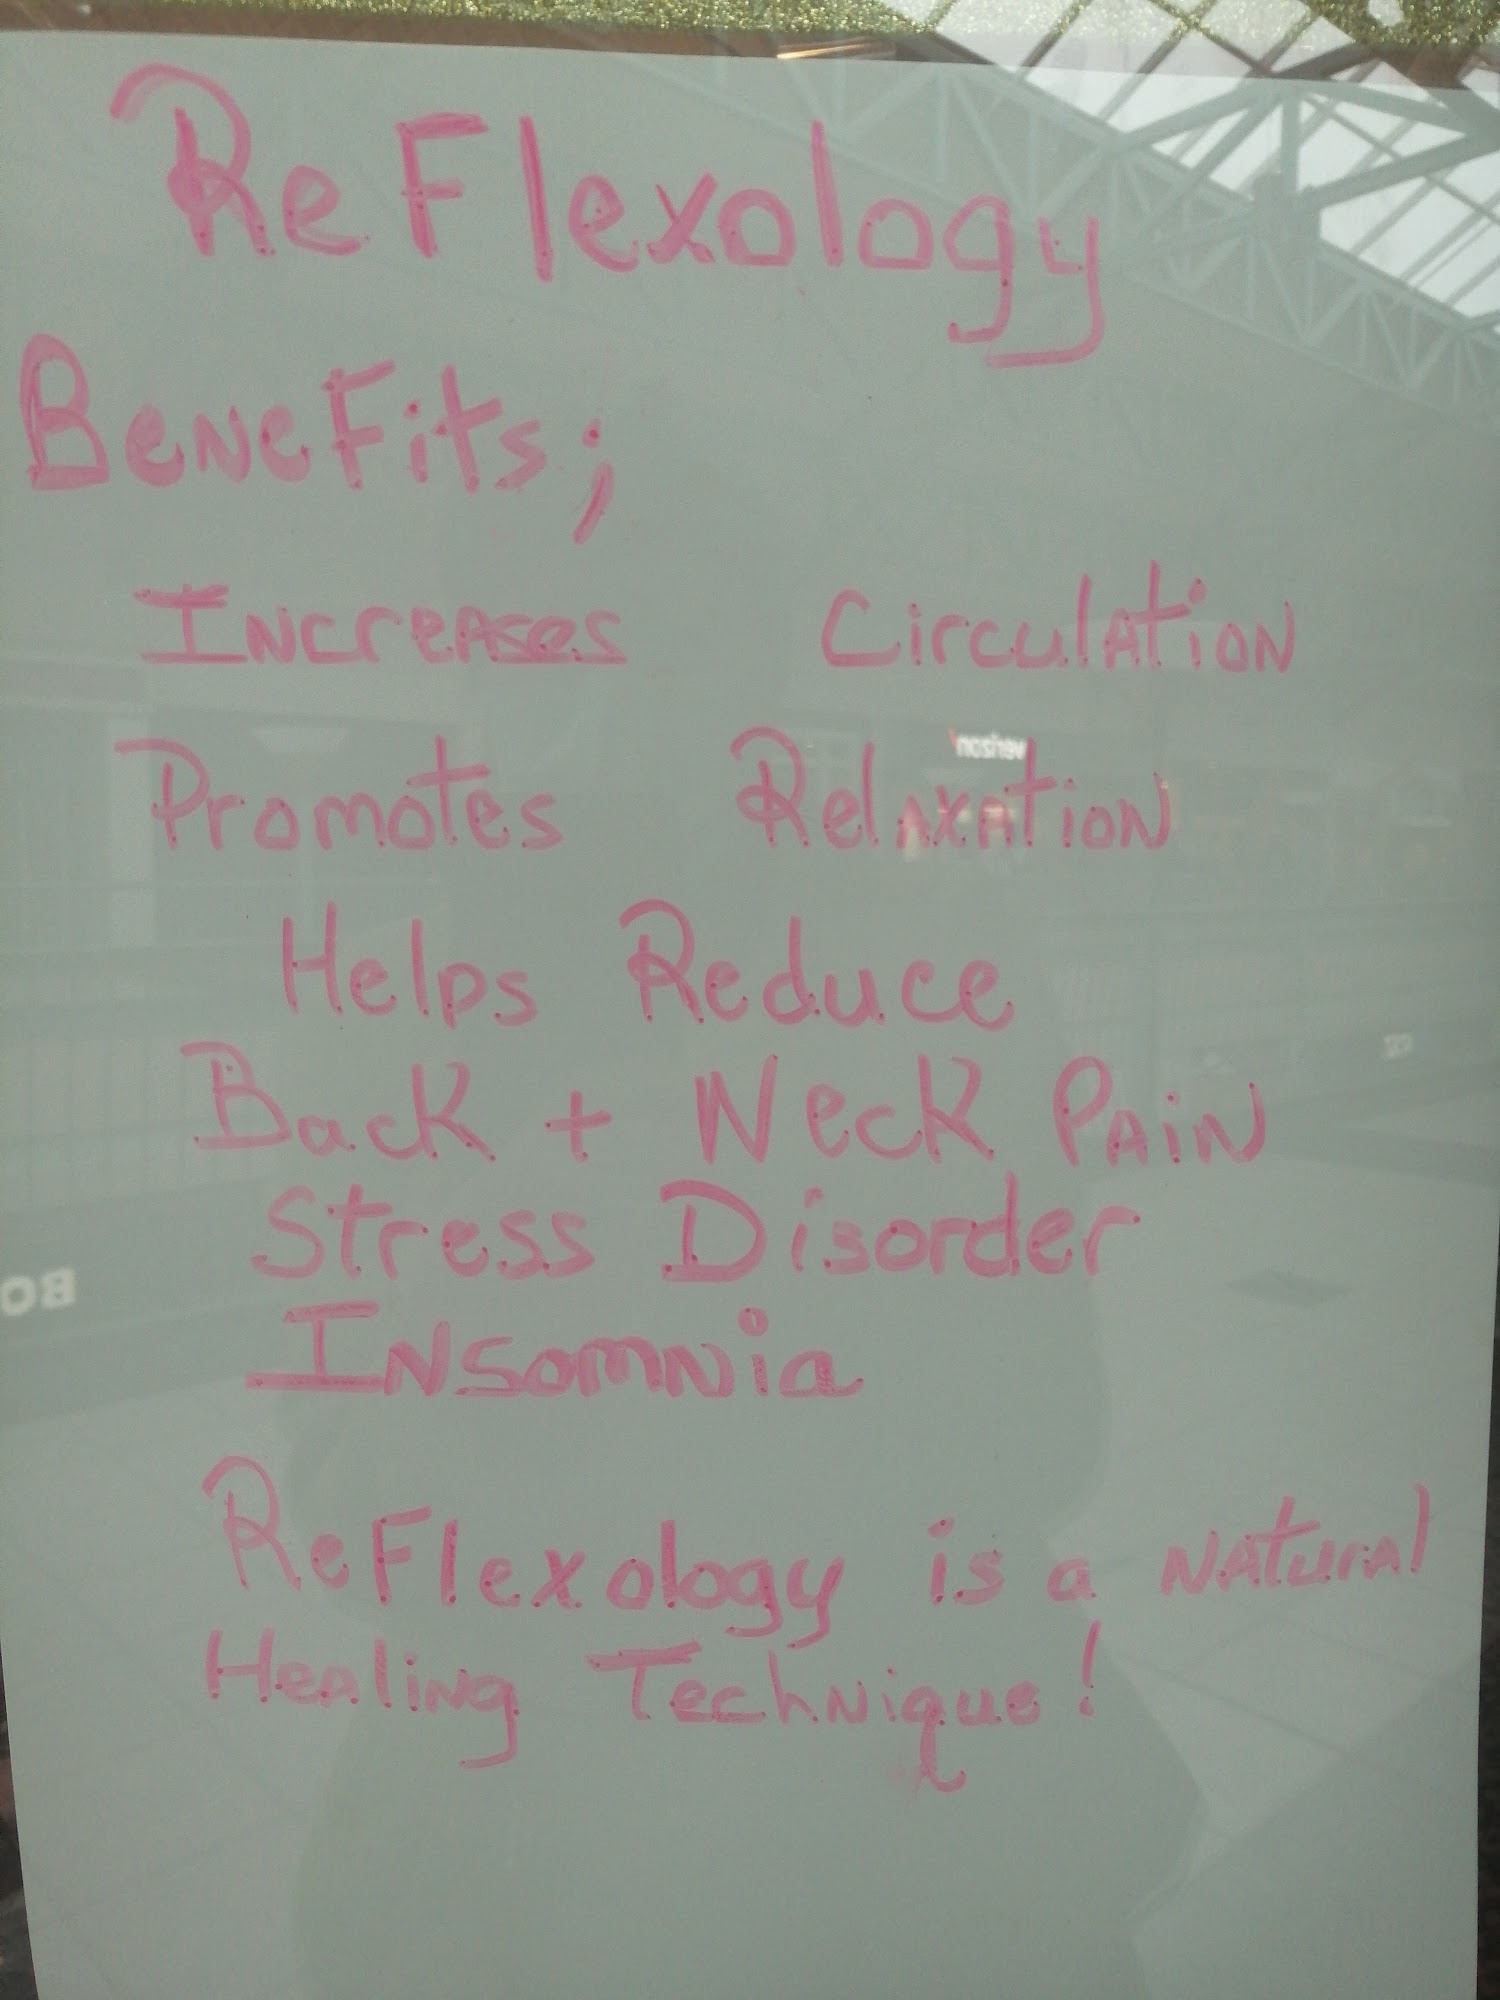 ReFlexology
BeneFits;
Increases Circulation
Promotes Relaxation
verizon
Helps Reduce
Back + Neck Pain
Stress Disorder
BO
Insomnia
ReFlexology is a Natural
Healing Technique!